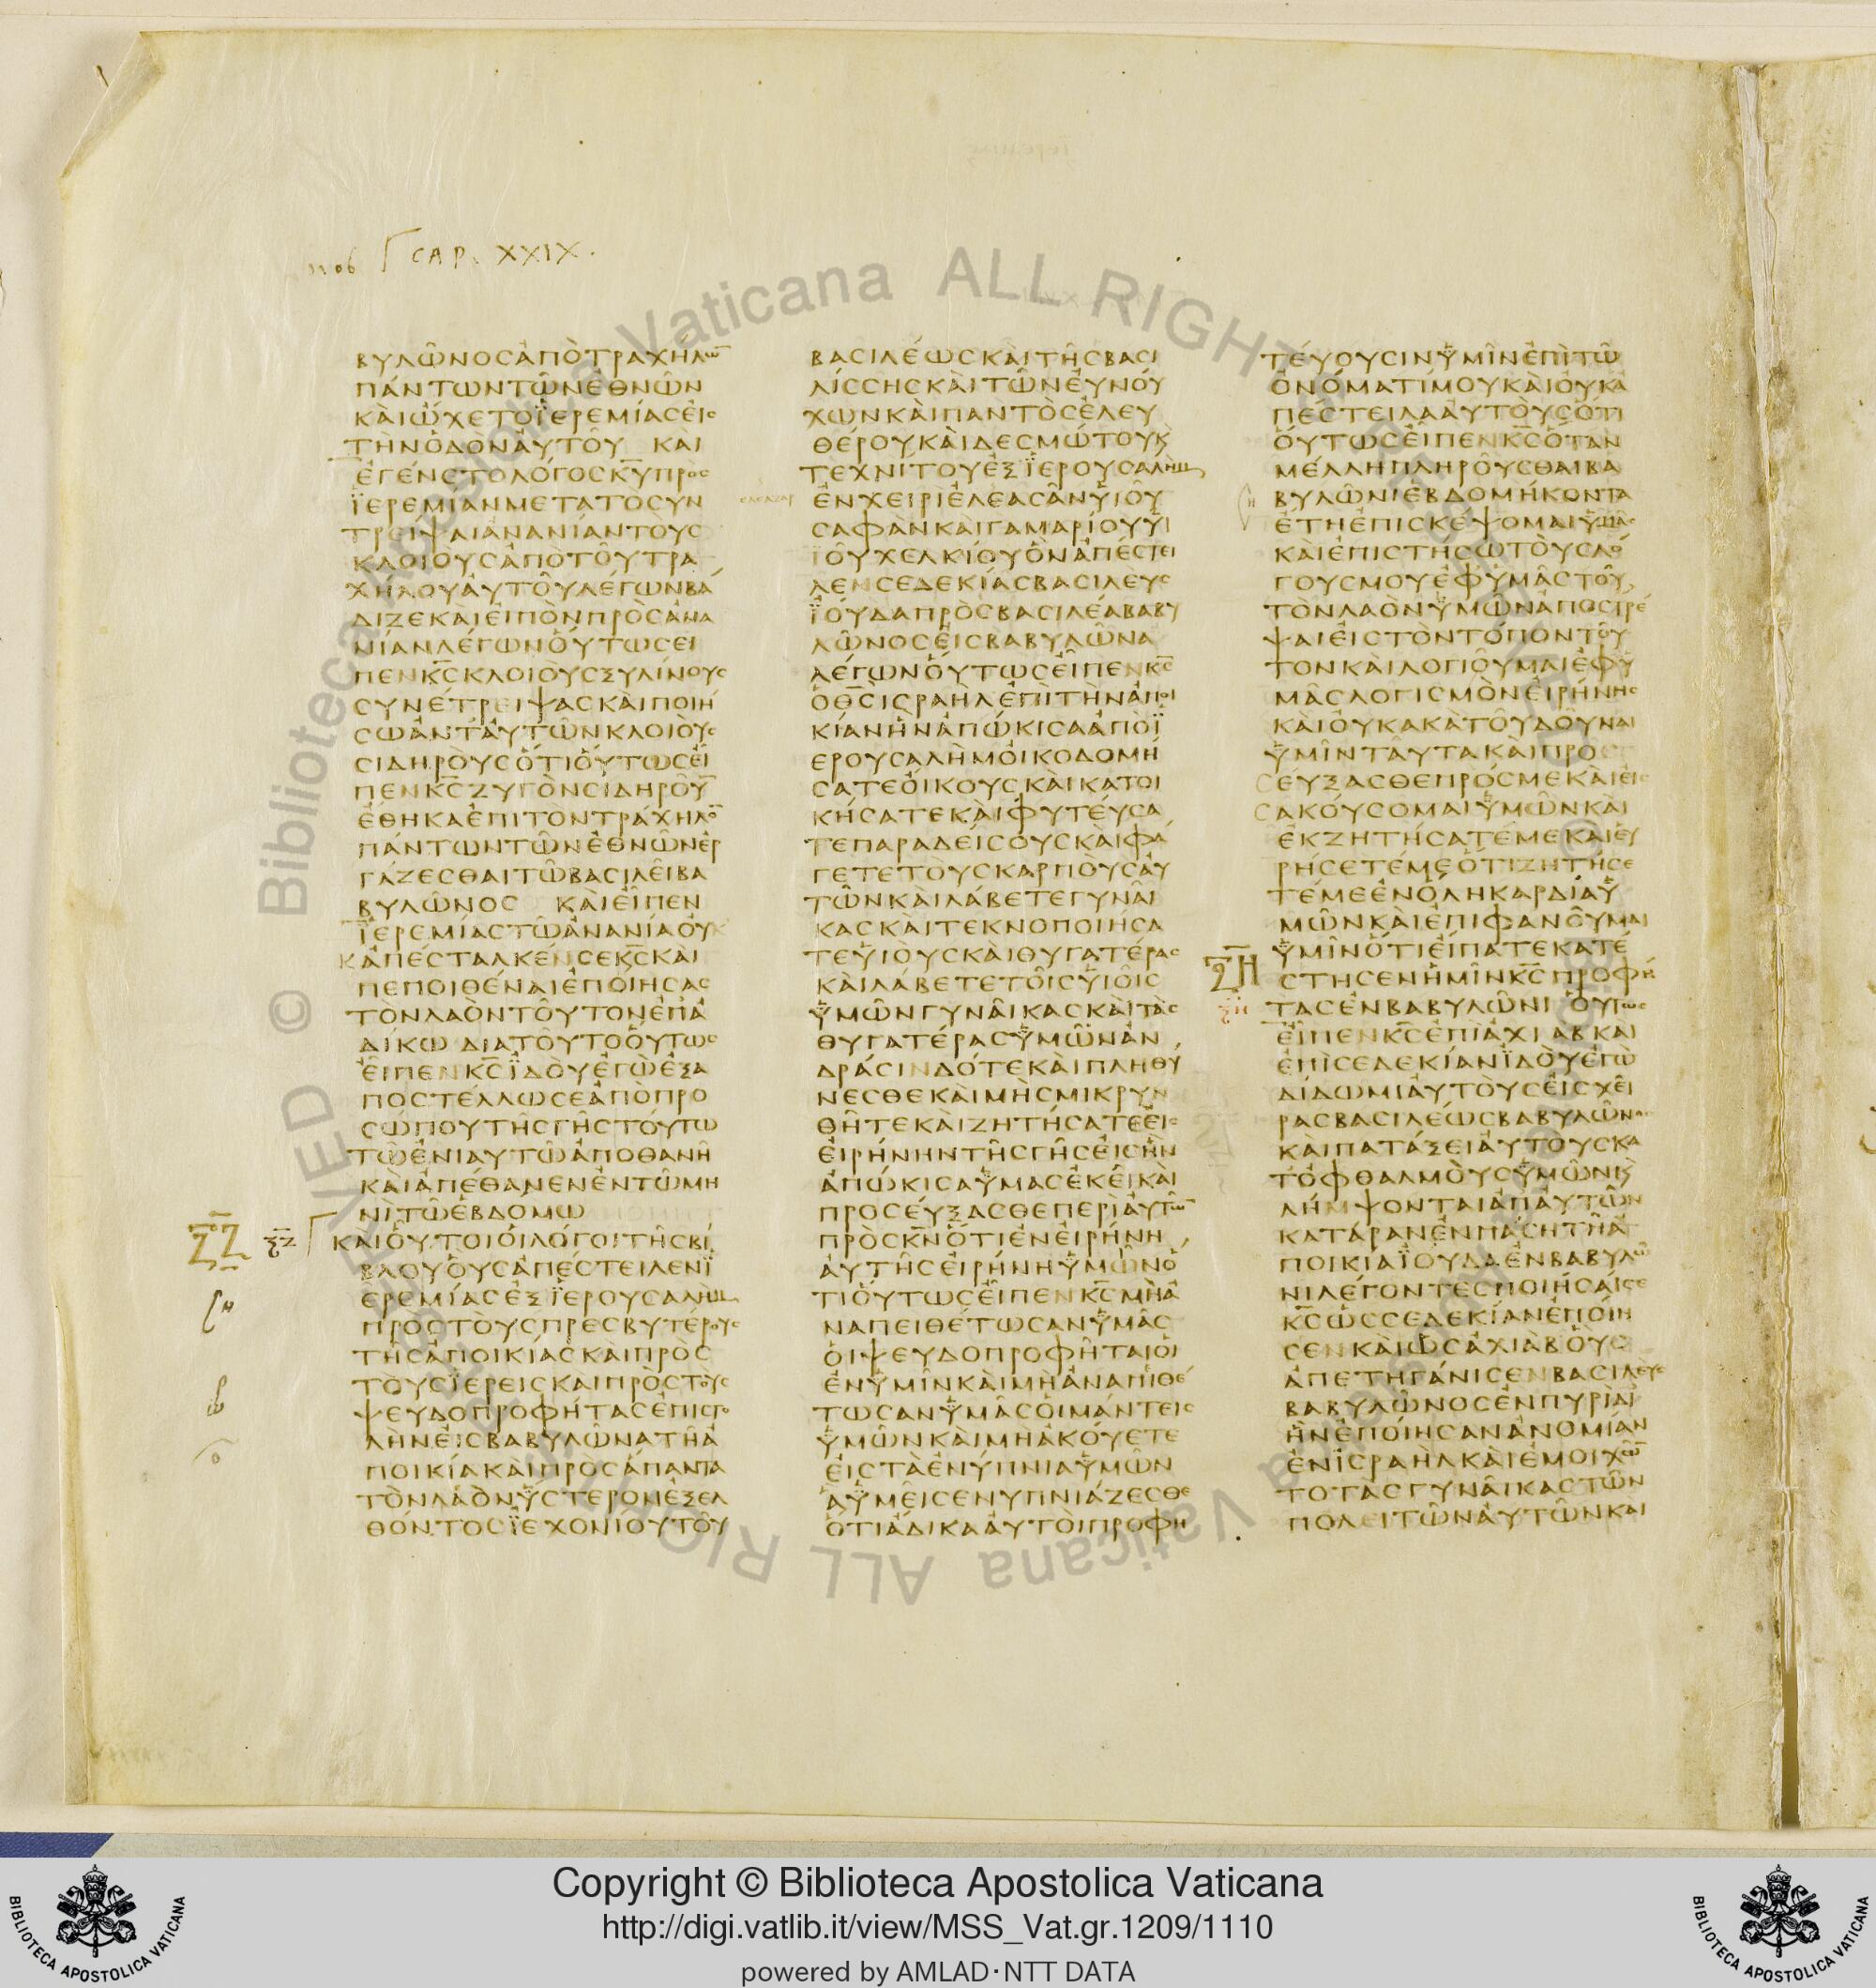 CAP. XXIX.
ΒΥΛΩΝΟCΑΠΟΤΡΑΧΗΛΩ̅
ΠΑΝΤΩΝΤΩΝΕΘΝΩΝ
ΚΑΙΩΧΕΤΟΪΕΡΕΜΙΑCΕΙC
ΤΗΝΟΔΟΝΑΥΤΟΥ ΚΑΙ
ΕΓΕΝΕΤΟΛΟΓΟCΚ̅Υ̅ΠΡΟC
ΪΕΡΕΜΙΑΝΜΕΤΑΤΟCΥΝ
ΤΡΕΙΨΑΙΑΝΑΝΙΑΝΤΟΥC
ΚΛΟΙΟΥCΑΠΟΤΟΥΤΡΑ
ΧΗΛΟΥΑΥΤΟΥΛΕΓΩΝΒΑ
ΔΙΖΕΚΑΙΕΙΠΟΝΠΡΟCΑΝΑ
ΝΙΑΝΛΕΓΩΝΟΥΤΩCΕΙ
ΠΕΝΚ̅C̅ΚΛΟΙΟΥCΞΥΛΙΝΟΥC
CΥΝΕΤΡΕΙΨΑCΚΑΙΠΟΙΗ
CΩΑΝΤΑΥΤΩΝΚΛΟΙΟΥC
CΙΔΗΡΟΥCΟΤΙΟΥΤΩCΕΙ
ΠΕΝΚ̅C̅ΖΥΓΟΝCΙΔΗΡΟΥ̅
ΕΘΗΚΑΕΠΙΤΟΝΤΡΑΧΗΛΟ̅
ΠΑΝΤΩΝΤΩΝΕΘΝΩΝΕΡ
ΓΑΖΕCΘΑΙΤΩΒΑCΙΛΕΙΒΑ
ΒΥΛΩΝΟC ΚΑΙΕΙΠΕΝ
ΪΕΡΕΜΙΑCΤΩΑΝΑΝΙΑΟΥ
ΚΑΠΕCΤΑΛΚΕΝCΕΚ̅C̅ΚΑΙ
ΠΕΠΟΙΘΕΝΑΙΕΠΟΙΗCΑC
ΤΟΝΛΑΟΝΤΟΥΤΟΝΕΠΑ
ΔΙΚΩ ΔΙΑΤΟΥΤΟΟΥΤΩC
ΕΙΠΕΝΚ̅C̅ΪΔΟΥΕΓΩΕΞΑ
ΠΟCΤΕΛΛΩCΕΑΠΟΠΡΟ
CΩΠΟΥΤΗCΓΗCΤΟΥΤΩ
ΤΩΕΝΙΑΥΤΩΑΠΟΘΑΝΗ
ΚΑΙΑΠΕΘΑΝΕΝΕΝΤΩΜΗ
ΝΙΤΩΕΒΔΟΜΩ
ΚΑΙΟΥΤΟΙΟΙΛΟΓΟΙΤΗCΒΙ
ΒΛΟΥΟΥCΑΠΕCΤΕΙΛΕΝΪ
ΕΡΕΜΙΑCΕΞΪΕΡΟΥCΑΛΗΜ
ΠΡΟCΤΟΥCΠΡΕCΒΥΤΕΡΟΥC
ΤΗCΑΠΟΙΚΙΑCΚΑΙΠΡΟC
ΤΟΥCΪΕΡΕΙCΚΑΙΠΡΟCΤΟΥC
ΨΕΥΔΟΠΡΟΦΗΤΑCΕΠΙCΤΟ
ΛΗΝΕΙCΒΑΒΥΛΩΝΑΤΗΑ
ΠΟΙΚΙΑΚΑΙΠΡΟCΑΠΑΝΤΑ
ΤΟΝΛΑΟΝΥCΤΕΡΟΝΕΞΕΛ
ΘΟΝΤΟCΪΕΧΟΝΙΟΥΤΟΥ
ΒΑCΙΛΕΩCΚΑΙΤΗCΒΑCΙ
ΛΙCCΗCΚΑΙΤΩΝΕΥΝΟΥ
ΧΩΝΚΑΙΠΑΝΤΟCΕΛΕΥ
ΘΕΡΟΥΚΑΙΔΕCΜΩΤΟΥΚ
ΤΕΧΝΙΤΟΥΕΞΪΕΡΟΥCΑΛΗΜ
ΕΝΧΕΙΡΙΕΛΕΑCΑΝΥΙΟΥ
CΑΦΑΝΚΑΙΓΑΜΑΡΙΟΥΥΙ
ΟΥΧΕΛΚΙΟΥΟΝΑΠΕCΤΕΙ
ΛΕΝCΕΔΕΚΙΑCΒΑCΙΛΕΥC
ΪΟΥΔΑΠΡΟCΒΑCΙΛΕΑΒΑΒΥ
ΛΩΝΟCΕΙCΒΑΒΥΛΩΝΑ
ΛΕΓΩΝΟΥΤΩCΕΙΠΕΝΚ̅C̅
ΟΘ̅C̅ΙCΡΑΗΛΕΠΙΤΗΝΑΠΟΙ
ΚΙΑΝΗΝΑΠΩΚΙCΑΑΠΟΪ
ΕΡΟΥCΑΛΗΜΟΙΚΟΔΟΜΗ
CΑΤΕΟΙΚΟΥCΚΑΙΚΑΤΟΙ
ΚΗCΑΤΕΚΑΙΦΥΤΕΥCΑ
ΤΕΠΑΡΑΔΕΙCΟΥCΚΑΙΦΑ
ΓΕΤΕΤΟΥCΚΑΡΠΟΥCΑΥ
ΤΩΝΚΑΙΛΑΒΕΤΕΓΥΝΑΙ
ΚΑCΚΑΙΤΕΚΝΟΠΟΙΗCΑ
ΤΕΥΙΟΥCΚΑΙΘΥΓΑΤΕΡΑC
ΚΑΙΛΑΒΕΤΕΤΟΙCΥΙΟΙC
ΥΜΩΝΓΥΝΑΙΚΑCΚΑΙΤΑC
ΘΥΓΑΤΕΡΑCΥΜΩΝΑΝ
ΔΡΑCΙΝΔΟΤΕΚΑΙΠΛΗΘΥ
ΝΕCΘΕΚΑΙΜΗCΜΙΚΡΥΝ
ΘΗΤΕΚΑΙΖΗΤΗCΑΤΕΕΙC
ΕΙΡΗΝΗΝΤΗCΓΗCΕΙCΗΝ
ΑΠΩΚΙCΑΥΜΑCΕΚΕΙΚΑΙ
ΠΡΟCΕΥΞΑCΘΕΠΕΡΙΑΥΤΩ̅
ΠΡΟCΚ̅Ν̅ΟΤΙΕΝΕΙΡΗΝΗ
ΑΥΤΗCΕΙΡΗΝΗΥΜΩΝΟ
ΤΙΟΥΤΩCΕΙΠΕΝΚ̅C̅ΜΗΑ
ΝΑΠΕΙΘΕΤΩCΑΝΥΜΑC
ΟΙΨΕΥΔΟΠΡΟΦΗΤΑΙΟΙ
ΕΝΥΜΙΝΚΑΙΜΗΑΝΑΠΙΘΕ
ΤΩCΑΝΥΜΑCΟΙΜΑΝΤΕΙC
ΥΜΩΝΚΑΙΜΗΑΚΟΥΕΤΕ
ΕΙCΤΑΕΝΥΠΝΙΑΥΜΩΝ
ΑΥΜΕΙCΕΝΥΠΝΙΑΖΕCΘΕ
ΟΤΙΑΔΙΚΑΑΥΤΟΙΠΡΟΦΗ
ΤΕΥΟΥCΙΝΥΜΙΝΕΠΙΤΩ
ΟΝΟΜΑΤΙΜΟΥΚΑΙΟΥΚΑ
ΠΕCΤΕΙΛΑΑΥΤΟΥCΟΤΙ
ΟΥΤΩCΕΙΠΕΝΚ̅C̅ΟΤΑΝ
ΜΕΛΛΗΠΛΗΡΟΥCΘΑΙΒΑ
ΒΥΛΩΝΙΕΒΔΟΜΗΚΟΝΤΑ
ΕΤΗΕΠΙCΚΕΨΟΜΑΙΥΜΑC
ΚΑΙΕΠΙCΤΗCΩΤΟΥCΛΟ
ΓΟΥCΜΟΥΕΦΥΜΑCΤΟΥ
ΤΟΝΛΑΟΝΥΜΩΝΑΠΟCΤΡΕ
ΨΑΙΕΙCΤΟΝΤΟΠΟΝΤΟΥ
ΤΟΝΚΑΙΛΟΓΙΟΥΜΑΙΕΦΥ
ΜΑCΛΟΓΙCΜΟΝΕΙΡΗΝΗC
ΚΑΙΟΥΚΑΚΑΤΟΥΔΟΥΝΑΙ
ΥΜΙΝΤΑΥΤΑΚΑΙΠΡΟ
CΕΥΞΑCΘΕΠΡΟCΜΕΚΑΙΕΙ
CΑΚΟΥCΟΜΑΙΥΜΩΝΚΑΙ
ΕΚΖΗΤΗCΑΤΕΜΕΚΑΙΕΥ
ΡΗCΕΤΕΜΕΟΤΙΖΗΤΗCΕ
ΤΕΜΕΕΝΟΛΗΚΑΡΔΙΑΥ
ΜΩΝΚΑΙΕΠΙΦΑΝΟΥΜΑΙ
ΥΜΙΝΟΤΙΕΙΠΑΤΕΚΑΤΕ
CΤΗCΕΝΗΜΙΝΚ̅C̅ΠΡΟΦΗ
ΤΑCΕΝΒΑΒΥΛΩΝΙ ΟΥΤΩC
ΕΙΠΕΝΚ̅C̅ΕΠΙΑΧΙΑΒΚΑΙ
ΕΠΙCΕΔΕΚΙΑΝΪΔΟΥΕΓΩ
ΔΙΔΩΜΙΑΥΤΟΥCΕΙCΧΕΙ
ΡΑCΒΑCΙΛΕΩCΒΑΒΥΛΩΝΟC
ΚΑΙΠΑΤΑΞΕΙΑΥΤΟΥCΚΑ
ΤΟΦΘΑΛΜΟΥCΥΜΩΝΚ
ΛΗΜΨΟΝΤΑΙΑΠΑΥΤΩΝ
ΚΑΤΑΡΑΝΕΝΠΑCΗΤΗΑ
ΠΟΙΚΙΑΪΟΥΔΑΕΝΒΑΒΥΛΩ
ΝΙΛΕΓΟΝΤΕCΠΟΙΗCΑΙCΕ
Κ̅C̅ΩCCΕΔΕΚΙΑΝΕΠΟΙΗ
CΕΝΚΑΙΩCΑΧΙΑΒΟΥC
ΑΠΕΤΗΓΑΝΙCΕΝΒΑCΙΛΕΥC
ΒΑΒΥΛΩΝΟCΕΝΠΥΡΙΔΙ
ΗΝΕΠΟΙΗCΑΝΑΝΟΜΙΑΝ
ΕΝΙCΡΑΗΛΚΑΙΕΜΟΙΧΩ̅
ΤΟΤΑCΓΥΝΑΙΚΑCΤΩΝ
ΠΟΛΕΙΤΩΝΑΥΤΩΝΚΑΙ
Copyright © Biblioteca Apostolica Vaticana
http://digi.vatlib.it/view/MSS_Vat.gr.1209/1110
powered by AMLAD·NTT DATA
BIBLIOTECA APOSTOLICA VATICANA
BIBLIOTECA APOSTOLICA VATICANA